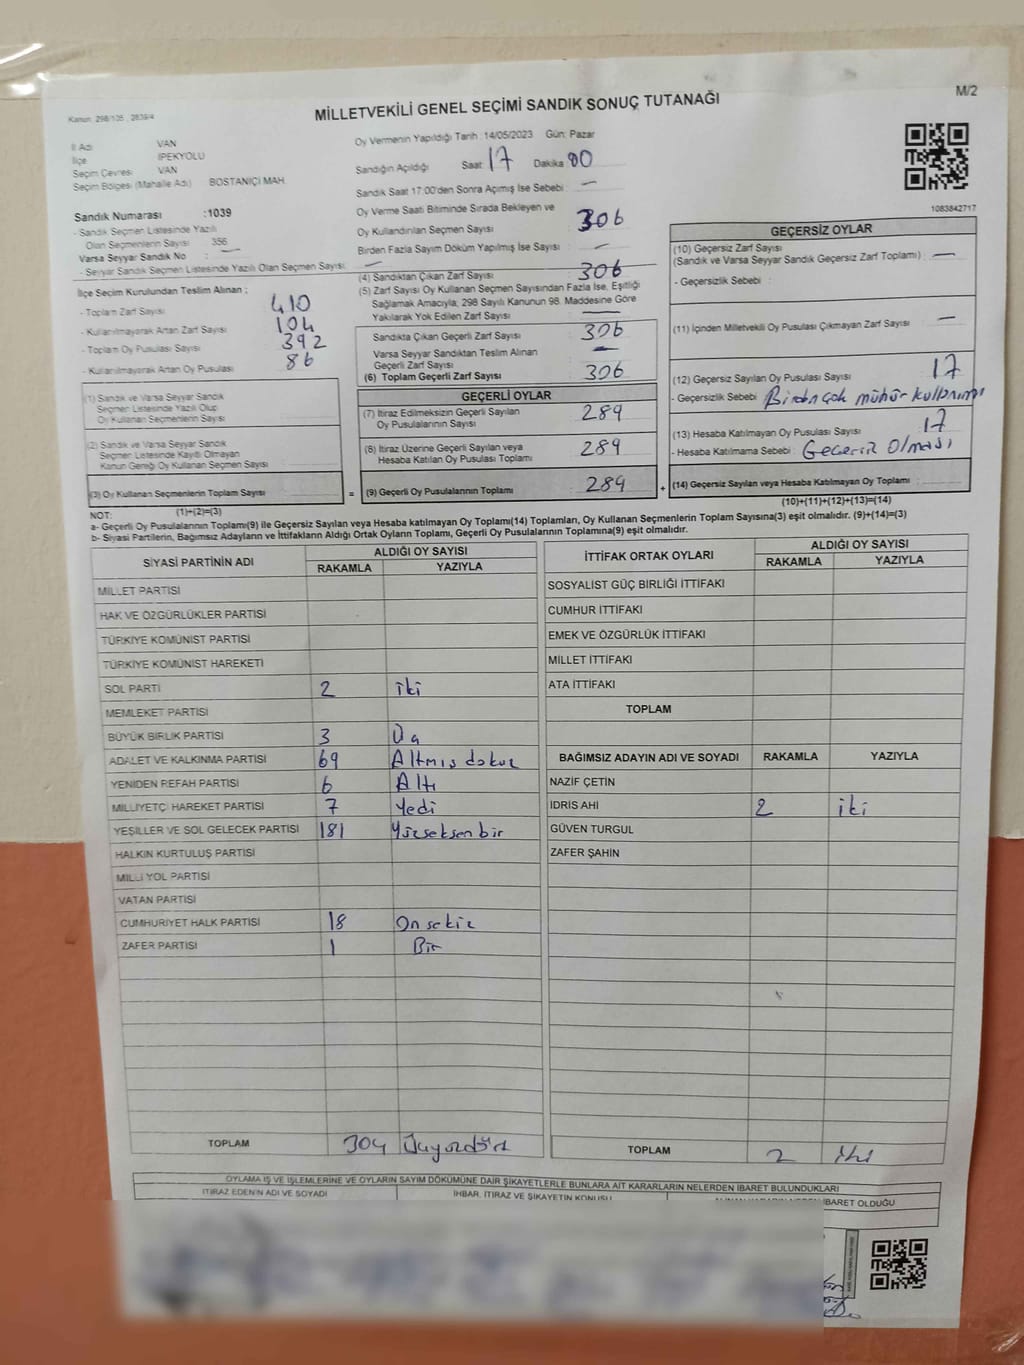 M/2
Kanun: 298/105 , 2839/4
MİLLETVEKİLİ GENEL SEÇİMİ SANDIK SONUÇ TUTANAĞI
İl Adı : VAN
İlçe : İPEKYOLU
Seçim Çevresi : VAN
Seçim Bölgesi (Mahalle Adı) : BOSTANİÇİ MAH
Sandık Numarası :1039
- Sandık Seçmen Listesinde Yazılı
Olan Seçmenlerin Sayısı : 356
Varsa Seyyar Sandık No : —
- Seyyar Sandık Seçmen Listesinde Yazılı Olan Seçmen Sayısı: —
İlçe Seçim Kurulundan Teslim Alınan ;
- Toplam Zarf Sayısı 410
- Kullanılmayarak Artan Zarf Sayısı 104
- Toplam Oy Pusulası Sayısı 392
- Kullanılmayarak Artan Oy Pusulası 86
(1) Sandık ve Varsa Seyyar Sandık
Seçmen Listesinde Yazılı Olup
Oy Kullanan Seçmenlerin Sayısı
(2) Sandık ve Varsa Seyyar Sandık
Seçmen Listesinde Kayıtlı Olmayan
Kanun Gereği Oy Kullanan Seçmen Sayısı
(3) Oy Kullanan Seçmenlerin Toplam Sayısı =
Oy Vermenin Yapıldığı Tarih: 14/05/2023 Gün: Pazar
Sandığın Açıldığı Saat: 17 Dakika: 00
Sandık Saat 17:00'den Sonra Açımış İse Sebebi : —
Oy Verme Saati Bitiminde Sırada Bekleyen ve
Oy Kullandırılan Seçmen Sayısı 306
Birden Fazla Sayım Döküm Yapılmış İse Sayısı : —
(4) Sandıktan Çıkan Zarf Sayısı 306
(5) Zarf Sayısı Oy Kullanan Seçmen Sayısından Fazla İse, Eşitliği
Sağlamak Amacıyla; 298 Sayılı Kanunun 98. Maddesine Göre
Yakılarak Yok Edilen Zarf Sayısı : —
Sandıkta Çıkan Geçerli Zarf Sayısı 306
Varsa Seyyar Sandıktan Teslim Alınan
Geçerli Zarf Sayısı —
(6) Toplam Geçerli Zarf Sayısı 306
GEÇERLİ OYLAR
(7) İtiraz Edilmeksizin Geçerli Sayılan
Oy Pusulalarının Sayısı 289
(8) İtiraz Üzerine Geçerli Sayılan veya
Hesaba Katılan Oy Pusulası Toplamı 289
(9) Geçerli Oy Pusulalarının Toplamı 289 +
1083842717
GEÇERSİZ OYLAR
(10) Geçersiz Zarf Sayısı
(Sandık ve Varsa Seyyar Sandık Geçersiz Zarf Toplamı) : —
- Geçersizlik Sebebi :
(11) İçinden Milletvekili Oy Pusulası Çıkmayan Zarf Sayısı : —
(12) Geçersiz Sayılan Oy Pusulası Sayısı : 17
- Geçersizlik Sebebi : Birden çok mühür kullanımı
(13) Hesaba Katılmayan Oy Pusulası Sayısı : 17
- Hesaba Katılmama Sebebi : Geçersiz Olması
(14) Geçersiz Sayılan veya Hesaba Katılmayan Oy Toplamı :
NOT: (1)+(2)=(3) (10)+(11)+(12)+(13)=(14)
a- Geçerli Oy Pusulalarının Toplamı(9) ile Geçersiz Sayılan veya Hesaba katılmayan Oy Toplamı(14) Toplamları, Oy Kullanan Seçmenlerin Toplam Sayısına(3) eşit olmalıdır. (9)+(14)=(3)
b- Siyasi Partilerin, Bağımsız Adayların ve İttifakların Aldığı Ortak Oyların Toplamı, Geçerli Oy Pusulalarının Toplamına(9) eşit olmalıdır.
SİYASİ PARTİNİN ADI ALDIĞI OY SAYISI
RAKAMLA YAZIYLA
MİLLET PARTİSİ
HAK VE ÖZGÜRLÜKLER PARTİSİ
TÜRKİYE KOMÜNİST PARTİSİ
TÜRKİYE KOMÜNİST HAREKETİ
SOL PARTİ 2 iki
MEMLEKET PARTİSİ
BÜYÜK BİRLİK PARTİSİ 3 Üç
ADALET VE KALKINMA PARTİSİ 69 Altmış dokuz
YENİDEN REFAH PARTİSİ 6 Altı
MİLLİYETÇİ HAREKET PARTİSİ 7 Yedi
YEŞİLLER VE SOL GELECEK PARTİSİ 181 Yüzseksenbir
HALKIN KURTULUŞ PARTİSİ
MİLLİ YOL PARTİSİ
VATAN PARTİSİ
CUMHURİYET HALK PARTİSİ 18 Onsekiz
ZAFER PARTİSİ 1 Bir
TOPLAM 304 Üçyüzdört
İTTİFAK ORTAK OYLARI ALDIĞI OY SAYISI
RAKAMLA YAZIYLA
SOSYALİST GÜÇ BİRLİĞİ İTTİFAKI
CUMHUR İTTİFAKI
EMEK VE ÖZGÜRLÜK İTTİFAKI
MİLLET İTTİFAKI
ATA İTTİFAKI
TOPLAM
BAĞIMSIZ ADAYIN ADI VE SOYADI RAKAMLA YAZIYLA
NAZİF ÇETİN
İDRİS AHİ 2 iki
GÜVEN TURGUL
ZAFER ŞAHİN
TOPLAM 2 iki
OYLAMA İŞ VE İŞLEMLERİNE VE OYLARIN SAYIM DÖKÜMÜNE DAİR ŞİKAYETLERLE BUNLARA AİT KARARLARIN NELERDEN İBARET BULUNDUKLARI
İTİRAZ EDENİN ADI VE SOYADI İHBAR, İTİRAZ VE ŞİKAYETİN KONUSU İBARET OLDUĞU